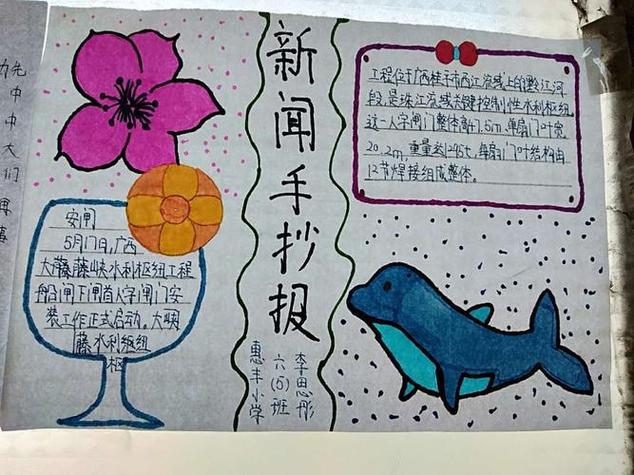 安闸
5月17日,广西
大藤藤峡水利枢纽工程
船闸下闸首人字闸门安
装工作正式启动。大峡
藤水利纽纽
枢
新闻手抄报
李思彤
六(5)班
惠丰小学
工程位于广西桂于市西江流域上的黔江河
段,是珠江流域关键控制性水利枢纽
这一人字闸门整体高47.5m,单扇门叶宽
20.2m,重量达1295t,单扇门叶结构由
12节焊接组成整体。
先
中
中
大
们